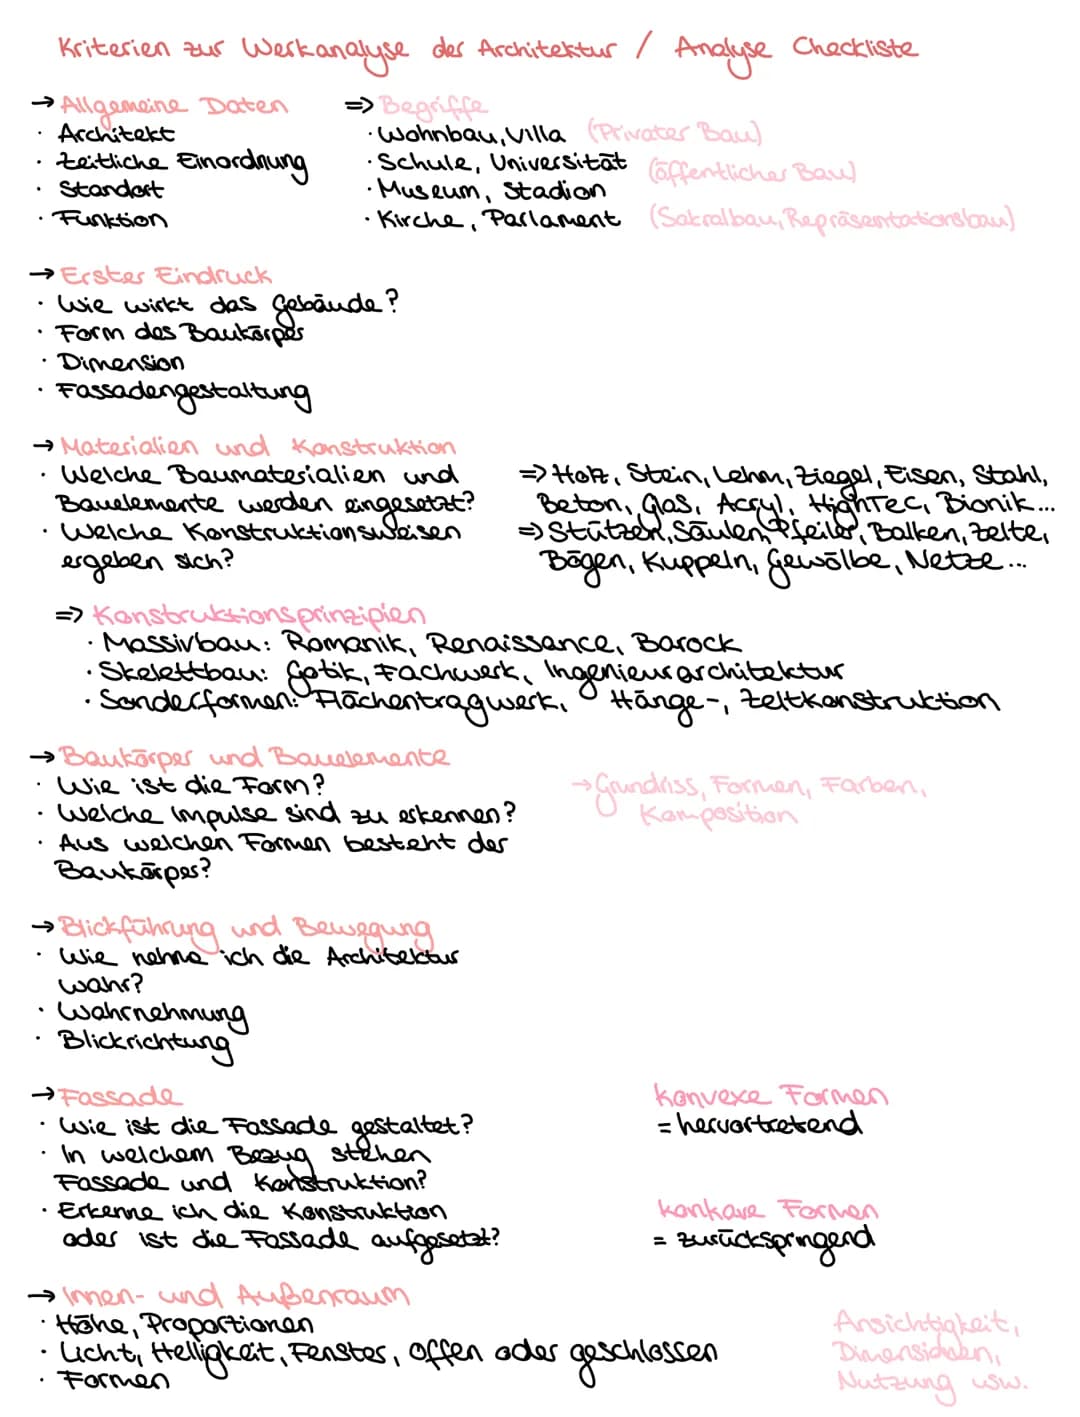 Kriterien zur Werkanalyse der Architektur / Analyse Checkliste
→ Allgemeine Daten
· Architekt
· zeitliche Einordnung
· Standort
· Funktion
⇒ Begriffe
· Wohnbau, Villa (Privater Bau)
· Schule, Universität (öffentlicher Bau)
· Museum, Stadion
· Kirche, Parlament (Sakralbau, Repräsentationsbau)
→ Erster Eindruck
· Wie wirkt das Gebäude?
· Form des Baukörper
· Dimension
· Fassadengestaltung
→ Materialien und Konstruktion
· Welche Baumaterialien und
Bauelemente werden eingesetzt?
· Welche Konstruktionsweisen
ergeben sich?
⇒ Holz, Stein, Lehm, Ziegel, Eisen, Stahl,
Beton, Glas, Acryl, HighTec, Bionik...
⇒ Stützen, Säulen, Pfeiler, Balken, Zelte,
Bögen, Kuppeln, Gewölbe, Netze...
⇒ Konstruktionsprinzipien
· Massivbau: Romanik, Renaissance, Barock
· Skelettbau: Gotik, Fachwerk, Ingenieurarchitektur
· Sonderformen: Flächentragwerk, Hänge-, Zeltkonstruktion
→ Baukörper und Bauelemente
· Wie ist die Form?
· Welche Impulse sind zu erkennen?
· Aus welchen Formen besteht der
Baukörper?
→ Grundriss, Formen, Farben,
Komposition
→ Blickführung und Bewegung
· Wie nehme ich die Architektur
wahr?
· Wahrnehmung
· Blickrichtung
→ Fassade
· Wie ist die Fassade gestaltet?
· In welchem Bezug stehen
Fassade und Konstruktion?
· Erkenne ich die Konstruktion
oder ist die Fassade aufgesetzt?
konvexe Formen
= hervortretend
konkave Formen
= zurückspringend
→ Innen- und Außenraum
· Höhe, Proportionen
· Licht, Helligkeit, Fenster, offen oder geschlossen
· Formen
Ansichtigkeit,
Dimensionen,
Nutzung usw.